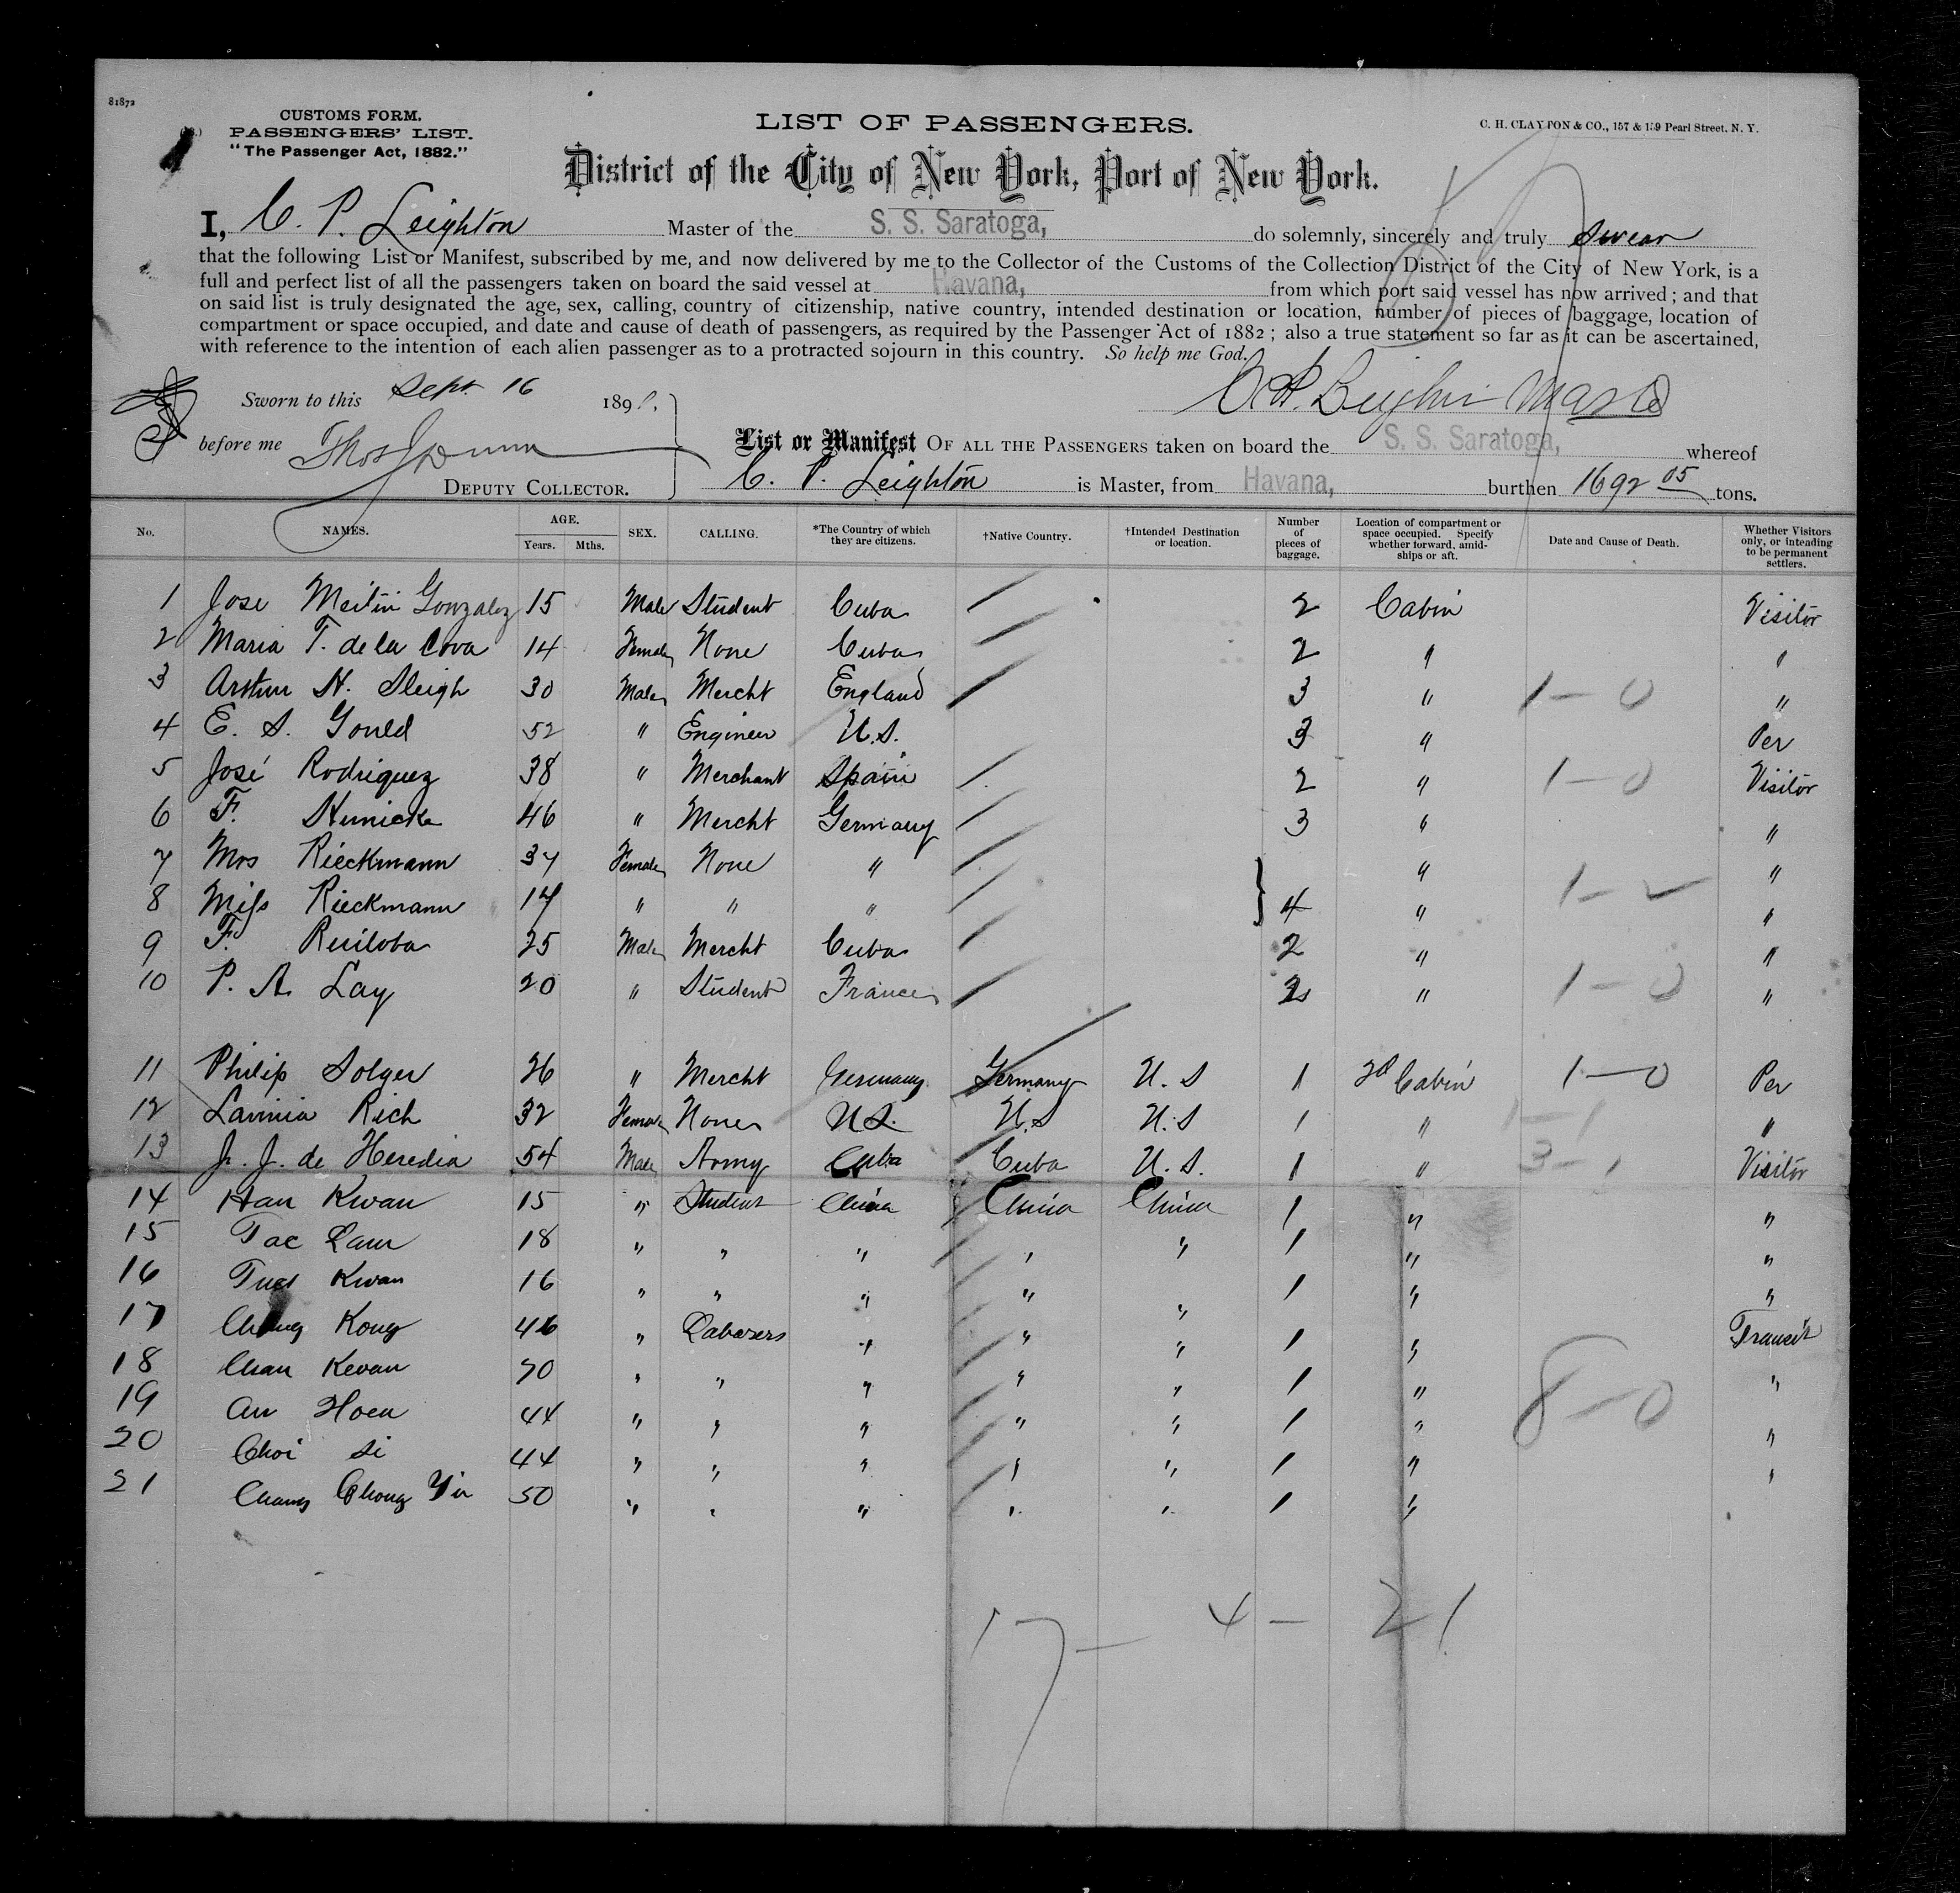 81872
CUSTOMS FORM.
PASSENGERS' LIST.
"The Passenger Act, 1882."
LIST OF PASSENGERS.
C. H. CLAYTON & CO., 157 & 159 Pearl Street, N. Y.
District of the City of New York, Port of New York.
I, C. P. Leighton Master of the S. S. Saratoga, do solemnly, sincerely and truly swear
that the following List or Manifest, subscribed by me, and now delivered by me to the Collector of the Customs of the Collection District of the City of New York, is a
full and perfect list of all the passengers taken on board the said vessel at Havana, from which port said vessel has now arrived; and that
on said list is truly designated the age, sex, calling, country of citizenship, native country, intended destination or location, number of pieces of baggage, location of
compartment or space occupied, and date and cause of death of passengers, as required by the Passenger Act of 1882; also a true statement so far as it can be ascertained,
with reference to the intention of each alien passenger as to a protracted sojourn in this country. So help me God.
Sworn to this Sept. 16 189
C. P. Leighton Master
before me Thos
DEPUTY COLLECTOR.
List or Manifest OF ALL THE PASSENGERS taken on board the S. S. Saratoga, whereof
C. P. Leighton is Master, from Havana, burthen 1692 05 tons.
No. NAMES. AGE. Years. Mths. SEX. CALLING. *The Country of which they are citizens. †Native Country. †Intended Destination or location. Number of pieces of baggage. Location of compartment or space occupied. Specify whether forward, amidships or aft. Date and Cause of Death. Whether Visitors only, or intending to be permanent settlers.
1 Jose Meitin Gonzalez 15 Male Student Cuba 2 Cabin Visitor
2 Maria T. de la Cova 14 Female None Cuba 2 " "
3 Arthur H. Sleigh 30 Male Mercht England 3 " 1-0 "
4 E. S. Gould 52 " Engineer U.S. 3 " Per
5 José Rodriguez 38 " Merchant Spain 2 " 1-0 Visitor
6 F. Hunicke 46 " Mercht Germany 3 " "
7 Mrs Rieckmann 37 Female None " " "
8 Miss Rieckmann 17 " " " 4 " 1-2 "
9 F. Ruiloba 25 Male Mercht Cuba 2 " "
10 P. A. Lay 20 " Student France 2 " 1-0 "
11 Philip Solger 26 " Mercht Germany Germany U. S 1 2d Cabin 1-0 Per
12 Lavinia Rich 32 Female None U.S. U.S U.S 1 " 1-1 "
13 J. J. de Heredia 54 Male Army Cuba Cuba U. S. 1 " 3-1 Visitor
14 Han Kwan 15 " Student China China China 1 " "
15 Tac Lam 18 " " " " " 1 " "
16 Kwan 16 " " " " " 1 " "
17 Chang Kong 46 " Laborers " " " 1 " Transit
18 Chan Kewan 50 " " " " " 1 " "
19 Au Hoen 44 " " " " " 1 " 8-0 "
20 Choi Si 44 " " " " " 1 " "
21 Chang Chong Yin 50 " " " " " 1 "
17 - 4 - 21